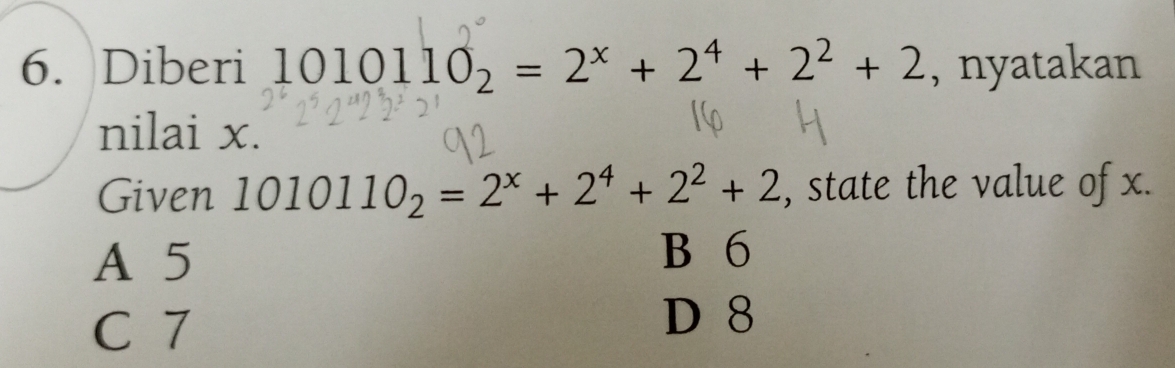 6. Diberi 1010110₂ = 2ˣ + 2⁴ + 2² + 2, nyatakan
2⁶ 2⁵ 2⁴ 2³ 2² 2¹ 2⁰
16 4
nilai x.
92
Given 1010110₂ = 2ˣ + 2⁴ + 2² + 2, state the value of x.
A 5 B 6
C 7 D 8